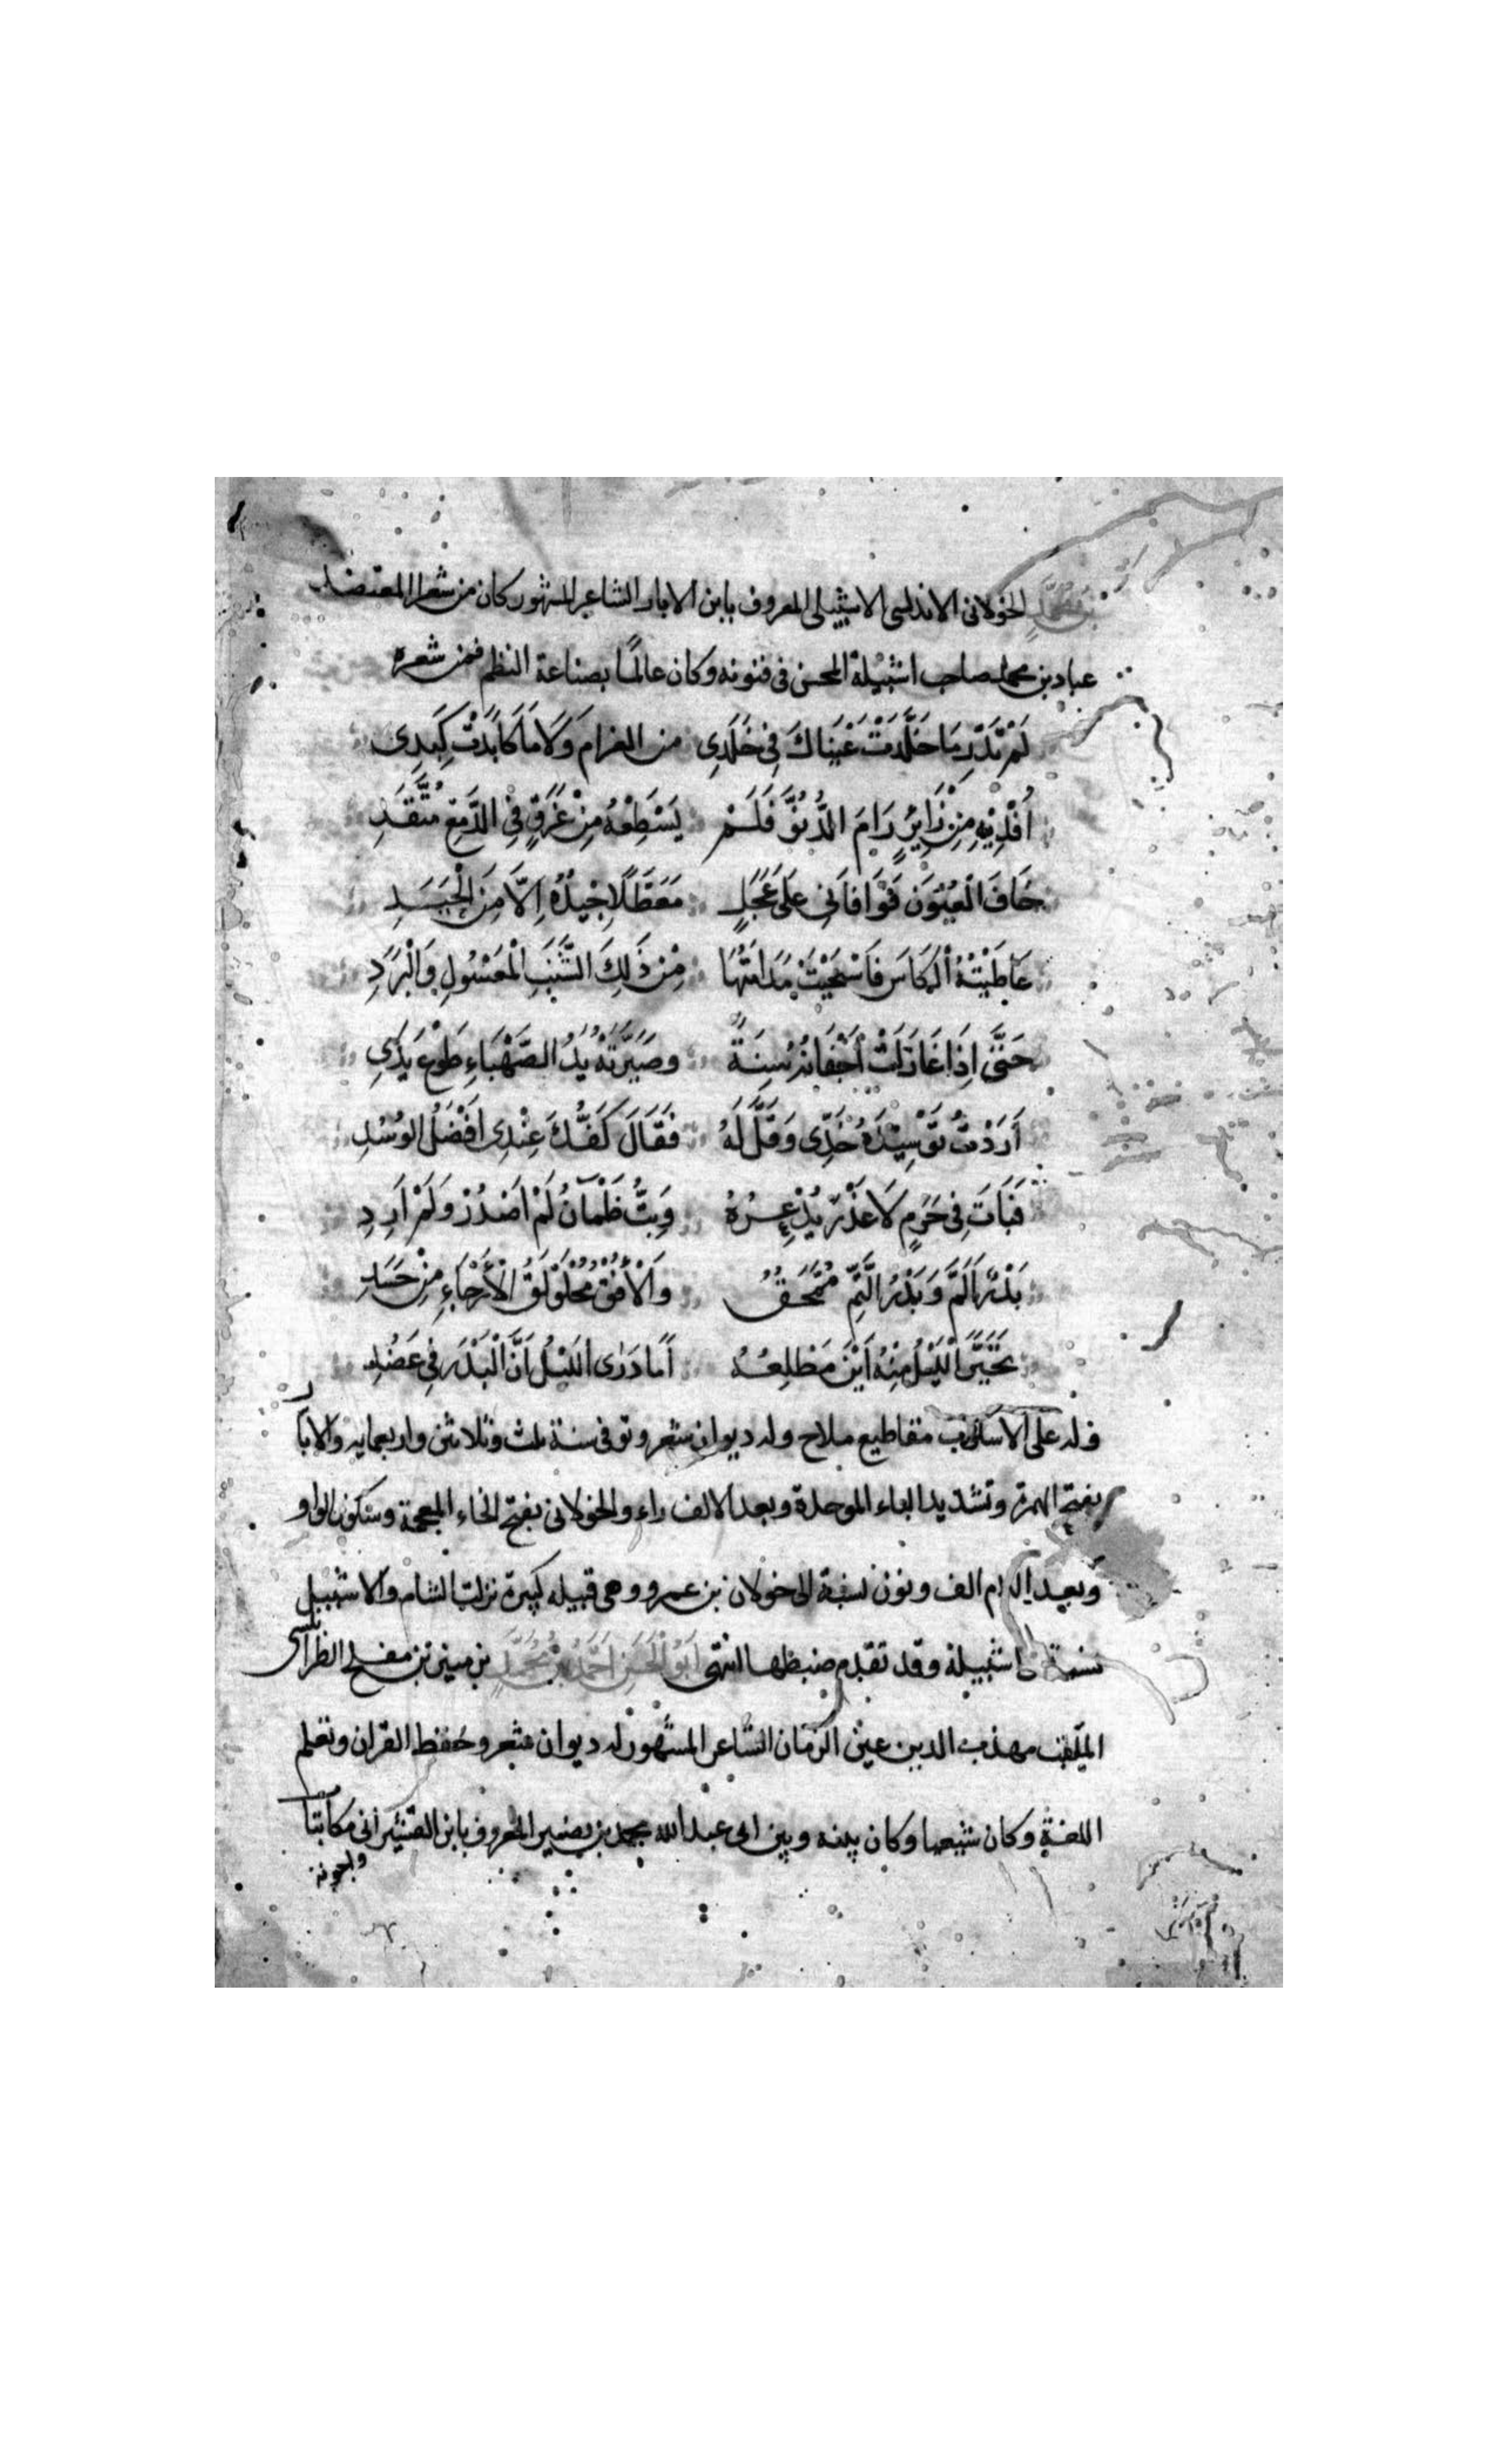 بن محمد الخولانى الاندلسى الاشبيلى المعروف بابن الابار الشاعر المشهور كان من شعرا المعتضد
عباد بن محمد صاحب اشبيلة المحسن فى فنونه وكان عالمًا بصناعة النظم فمن شعره
لَمْ تَدْرِ مَا خَلَّدَتْ عَيْنَاكَ فِى خَلَدِى من الغرام وَلَا مَا كَابَدَتْ كَبِدِى
أُفْدِيْهِ مِنْ زَايِرٍ رَامَ الدُّنُوَّ فَلَمْ يَسْطِعْهُ مِنْ غَرَقٍ فِي الدَّمْعِ مُتَّقَدِ
خَافَ الْعُيُوَن فَوَافَانِى عَلَى عَجَلٍ مَعَطَّلًا جِيْدُهُ اِلَّا مِنَ الْجَيَدِ
عَاطَيْتُهُ الْكَاسَ فَاسْتَحْيَتْ مُدَامَتُهَا مِنْ ذَلِكَ الشَّنَبِ الْمَعْسُولِ وَالْبَرَدِ
حَتَّى اِذَا غَازَلَتْ أَجْفَانَهُ سِنَةٌ وصَيَّرَتْهُ يَدُ الصَّهْبَاءِ طَوْعَ يَدِى
أَرَدْتُ تَوْسِيْدَهُ خَدِّى وَقَلَّ لَهُ فَقَالَ كَفُّكَ عِنْدِى اَفْضَلُ الوُسُدِ
فَبَاتَ فِى حَرَمٍ لَا غَدْرَ يُذْعِرُهُ وَبِتُّ ظَمْآنُ لَمْ اَصْدُرْ وَلَمْ اَرِدِ
بَدْرٌ اَلَمَّ وَبَدْرُ التَّمِّ مُمْتَحَقٌ وَالْأُفْقُ مُحْلَوْلَكُ الْأَرْجَاءِ مِنْ حَسَدِ
تَحَيَّرَ الْلَيْلُ مِنْهُ اَيْنَ مَطْلِعُهُ اَمَا دَرَى اللَيْلُ اَنَّ الْبَدْرَ فِى عَضُدِى
وله على الاسلوب مقاطيع ملاح وله ديوان شعر وتوفى سنة ثلث وثلاثين واربعمايه والابار
بفتح الهمزة وتشديد الباء الموحدة وبعد الالف راء والخولانى بفتح الخاء المعجمة وسكون الواو
وبعد اللام الف ونون نسبة الى خولان بن عمرو وهى قبيله كبيرة نزلت الشام والاشبيلى
نسبة الى اشبيلة وقد تقدم ضبطها انتهى اَبُو الْحَسَن اَحْمَدُ بْنُ مُحَمَّدٍ بن منير بن مفلح الطرابلسى
الملقب مهذب الدين عين الزمان الشاعر المشهور له ديوان شعر وحفظ القران وتعلم
اللغة وكان شيعيا وكان بينه وبين ابى عبد الله محمد بن نصير المعروف بابن القيسرانى مكاتبات